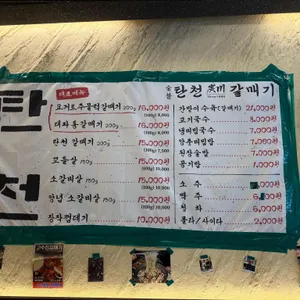 탄천
대표메뉴
요거트주물럭갈매기 200g 16,000원
(100g) 8,000
대파통갈매기 200g 16,000원
(100g) 8,000
탄천 갈매기 150g 15,000원
(100g) 10,000
모듬살 150g 15,000원
(100g) 10,000
소갈비살 150g 15,000원
(100g) 10,000
양념 소갈비살 150g 15,000원
(100g) 10,000
탄천 炭川 갈매기
가랑이수육(갈매기) 21,000원
고기국수 8,000원
냉비빔국수 7,000원
강추비빔밥 7,000원
된장술밥 7,000원
공기밥 1,000원
소주
맥주
청하 6,000원
콜라/사이다 2,000원